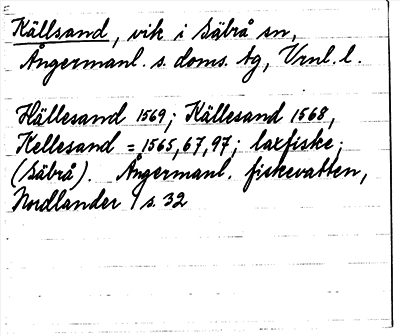 Källsand, vik i Säbrå sn,
Ångermanl. s. doms. tg, Vrnl. l.
Hällesand 1569; Källesand 1568,
Kellesand = 1565, 67, 97; laxfiske;
(Säbrå). Ångermanl. fiskevatten,
Nordlander s. 32